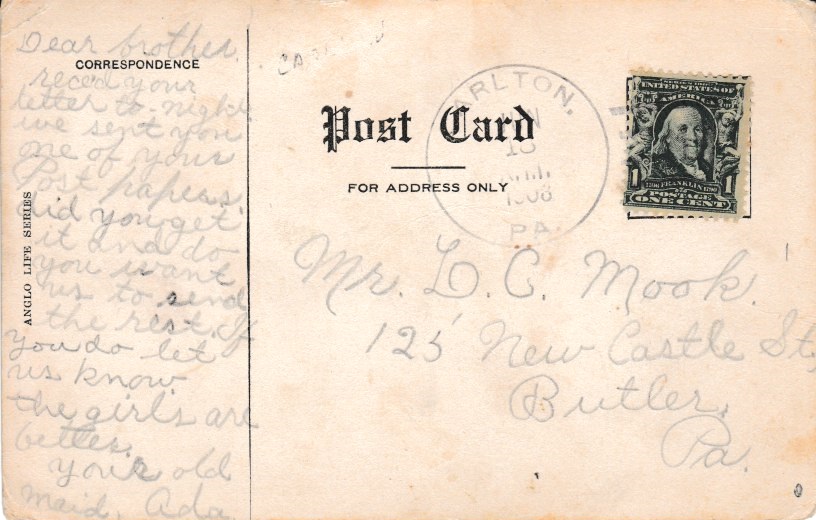 Dear brother.
CORRESPONDENCE
reced your
letter to-night
we sent you
one of your
Post papers
did you get
it and do
you want
us to send
the rest. If
you do let
us know.
the girls are
better.
your old
maid, Ada
ANGLO LIFE SERIES
Post Card
FOR ADDRESS ONLY
ARLTON.
1908
PA.
SERIES 1902
UNITED STATES OF
AMERICA
1706 FRANKLIN 1790
1 1
POSTAGE
ONE CENT
Mr. L. C. Mook.
125 New Castle St,
Butler,
Pa.